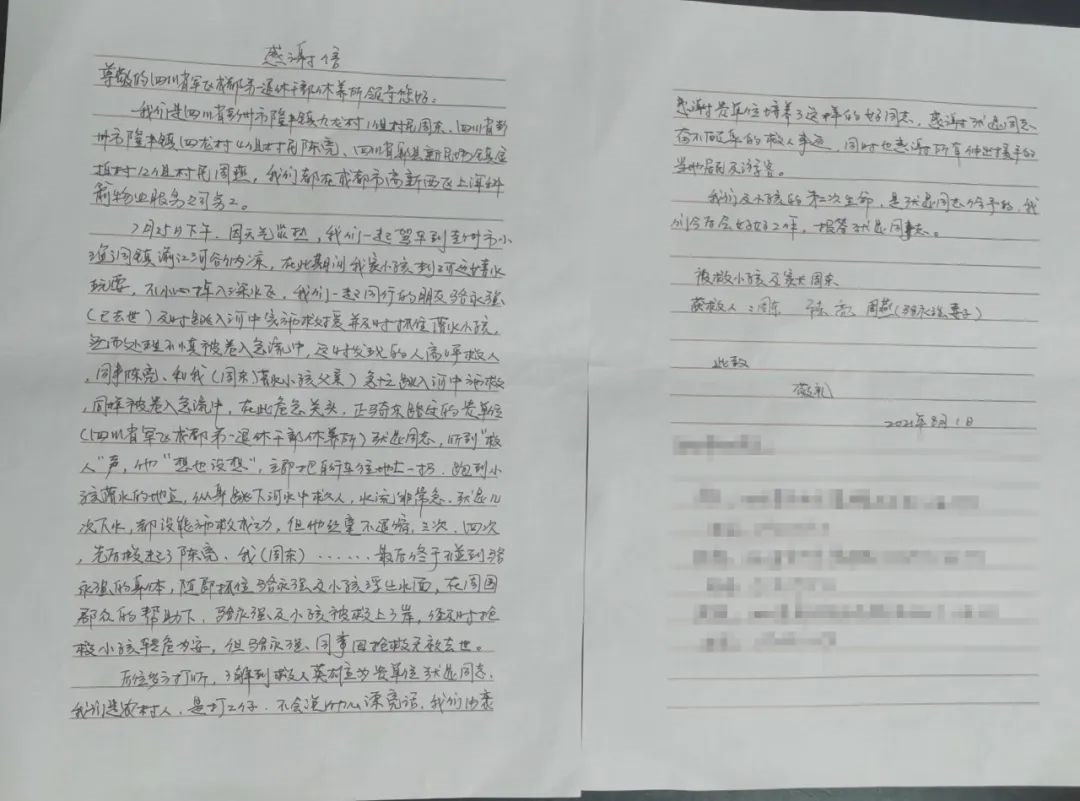 感谢信
尊敬的四川省军区成都第一退休干部休养所领导您好：
我们是四川省彭州市隆丰镇九龙村1组村民周东、四川省彭
州市隆丰镇四龙村4组村民陈亮、四川省郫县新民场镇
村12组村民周燕，我们都在成都市高新西区上
物业服务公司务工。
7月25日下午，因天气炎热，我们一起驾车到彭州市小
渔洞镇湔江河谷纳凉，在此期间我家小孩到河边嬉水
玩耍，不小心掉入深水区，我们一起同行的朋友骆永强
（已去世）及时跳入河中实施救援并及时抓住落水小孩，
然而处理不慎被卷入急流中，这时发现的人高呼救人
，同事陈亮、和我（周东）落水小孩父亲）急忙跳入河中施救
，同样被卷入急流中，在此危急关头，正骑车路过的贵单位
（四川省军区成都第一退休干部休养所）同志，听到“救
人”声，他“想也没想”，立即把自行车往地上一扔，跑到小
孩落水的地点，纵身跳下河水中救人，水流非常急，几
次下水，都没能施救成功，但他丝毫不退缩，三次、四次
，先后救起了陈亮、我（周东）……最后终于碰到骆
永强的身体，随即抓住骆永强及小孩浮出水面，在周围
群众的帮助下，骆永强及小孩被救上了岸，经及时抢
救小孩转危为安，但骆永强同事因抢救无效去世。
后经多方打听，了解到救人英雄为贵单位同志，
我们是农村人，是打工仔，不会说什么漂亮话，我们由衷
感谢贵单位培养了这样的好同志，感谢同志
奋不顾身的救人事迹，同时也感谢所有伸出援手的
当地居民及游客。
我们及小孩的第二次生命，是同志给予的，我
们今后会好好工作，报答同志。
被救小孩及家长周东
获救人：周东 陈亮 周燕（骆永强妻子）
此致
敬礼
2021年8月1日